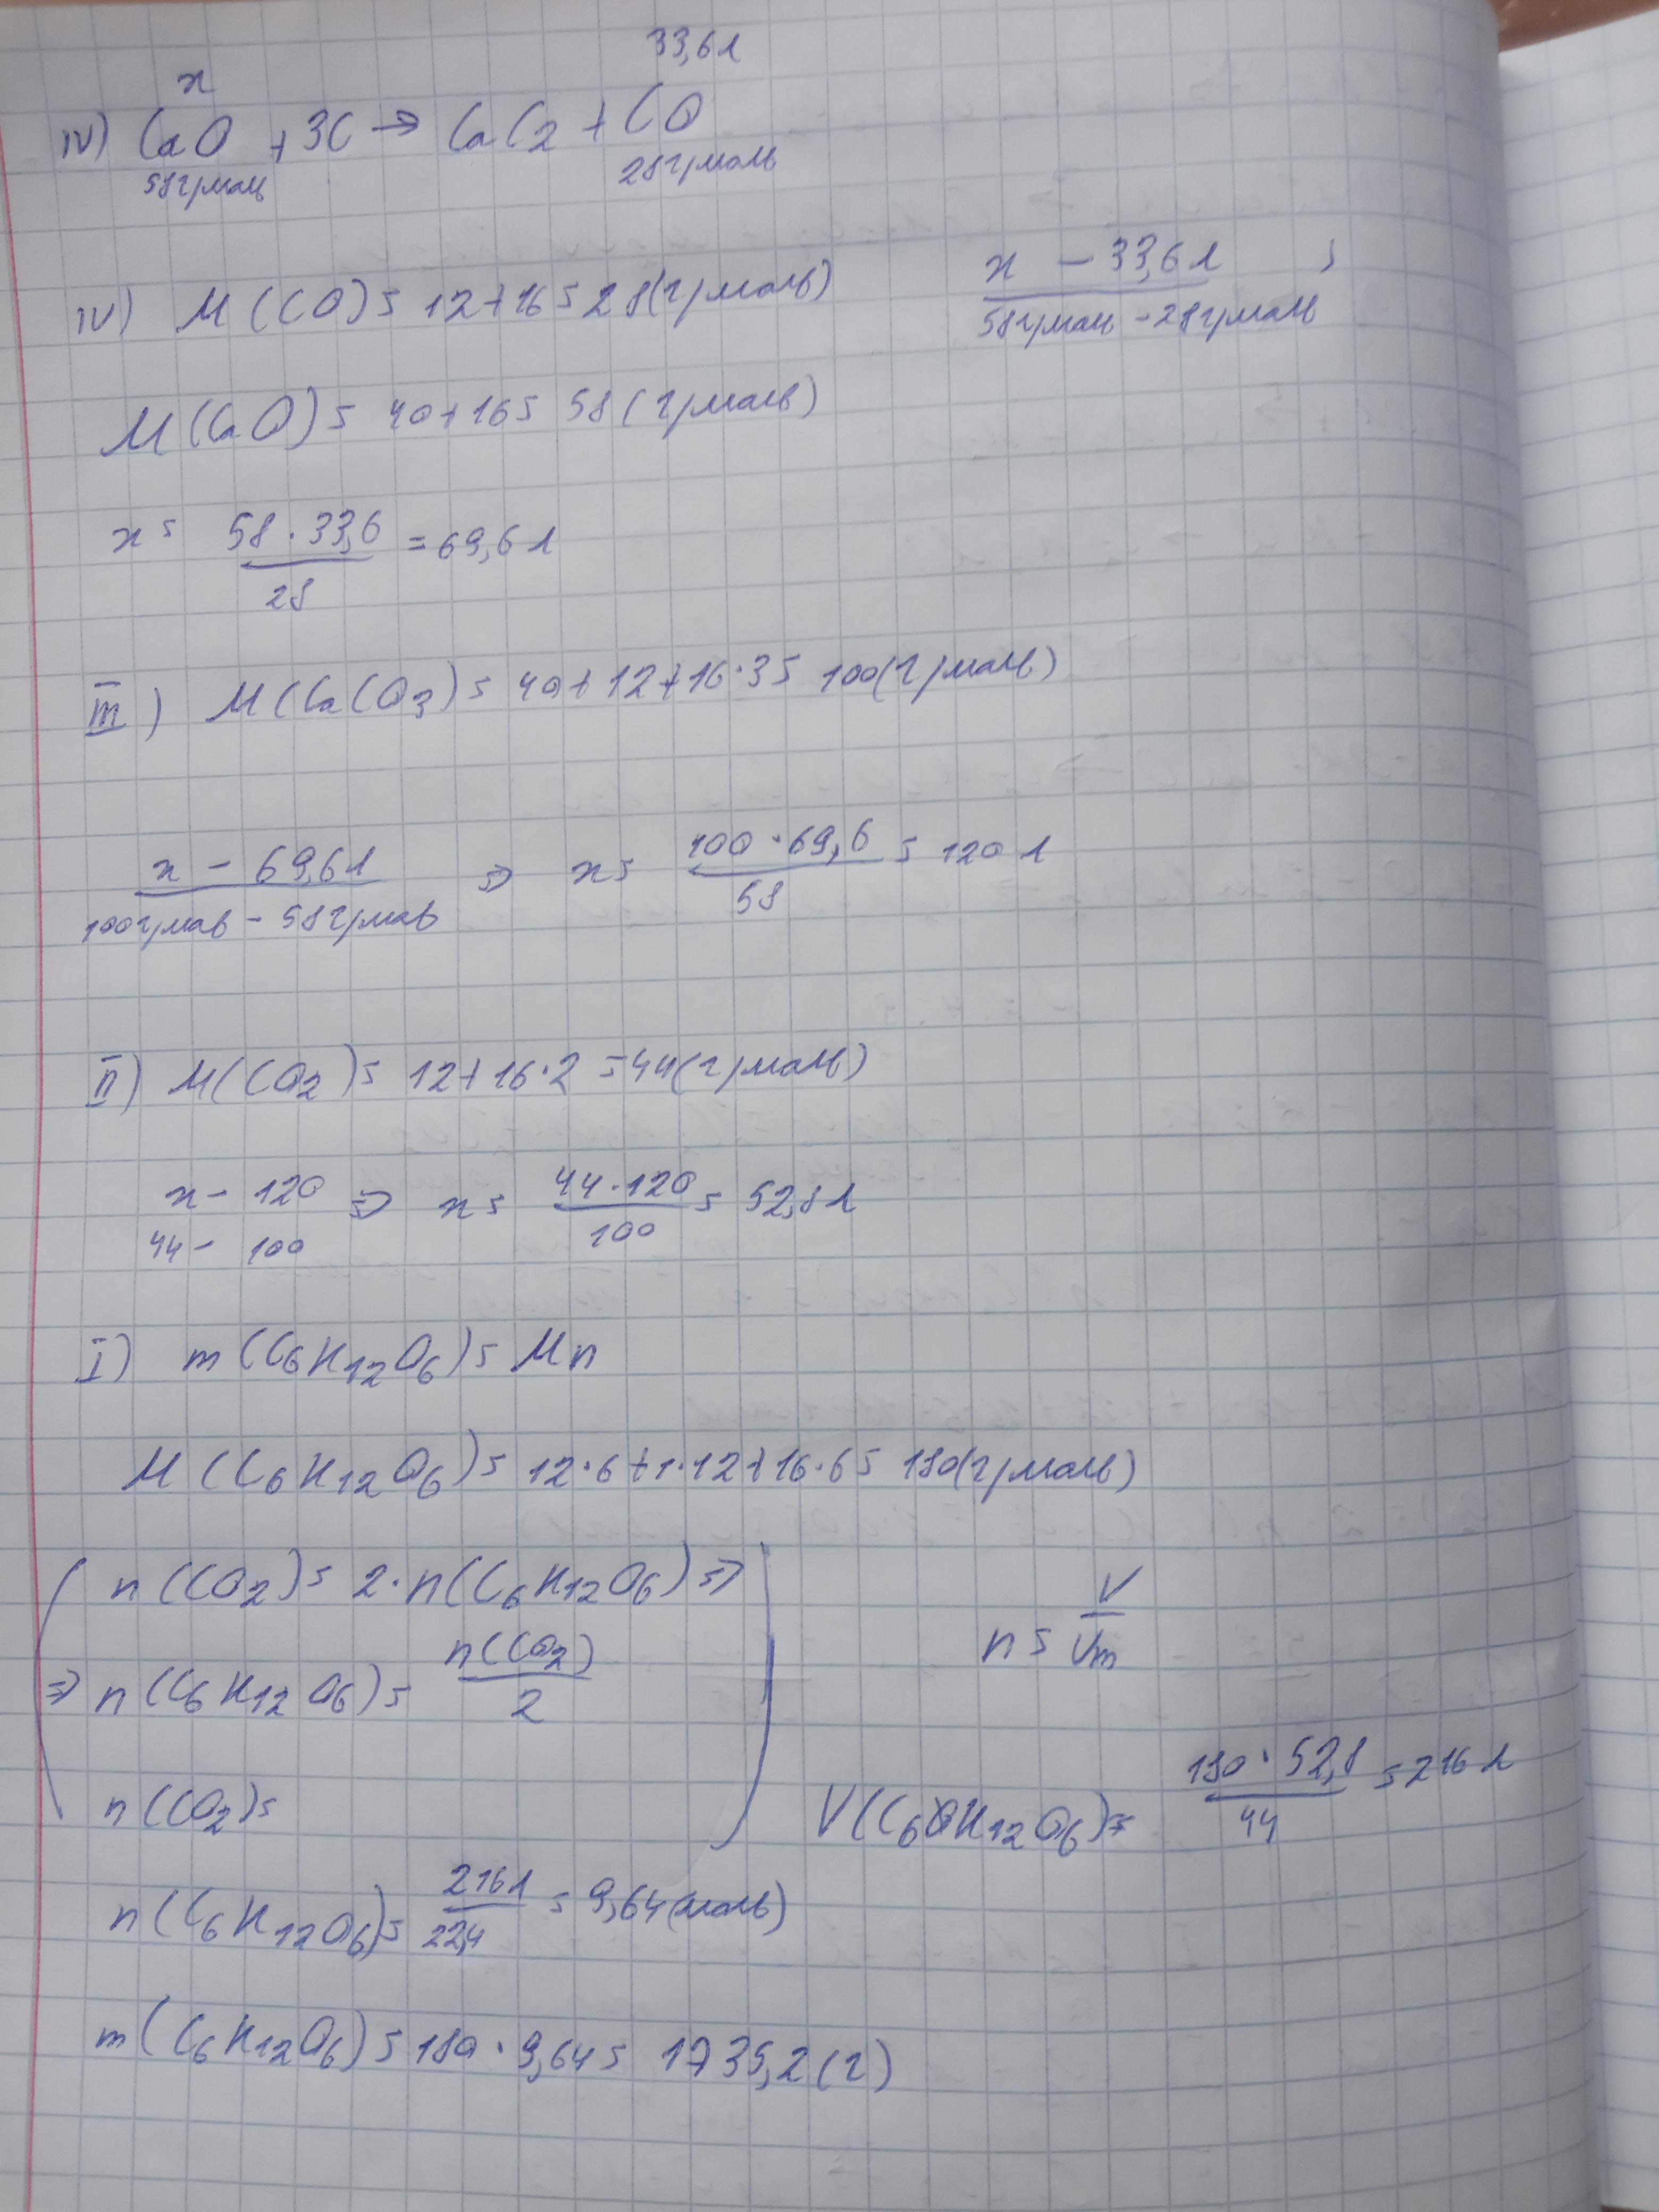 x 33,6л
IV) CaO + 3C → CaC2 + CO
58г/моль 28г/моль
IV) M(CO) = 12+16 = 28(г/моль)
x − 33,6л ;
58г/моль − 28г/моль
M(CaO) = 40+16 = 58(г/моль)
x = 58·33,6 / 28 = 69,6л
III) M(CaCO3) = 40+12+16·3 = 100(г/моль)
x − 69,6л ⇒ x = 100·69,6 / 58 = 120л
100г/моль − 58г/моль
II) M(CO2) = 12+16·2 = 44(г/моль)
x − 120 ⇒ x = 44·120 / 100 = 52,8л
44 − 100
I) m(C6H12O6) = Mn
M(C6H12O6) = 12·6+1·12+16·6 = 180(г/моль)
n(CO2) = 2·n(C6H12O6) ⇒
⇒ n(C6H12O6) = n(CO2) / 2
n = V / Vm
n(CO2) =
V(C6H12O6) = 180·52,8 / 44 = 216л
n(C6H12O6) = 216л / 22,4 = 9,64(моль)
m(C6H12O6) = 180·9,64 = 1735,2(г)